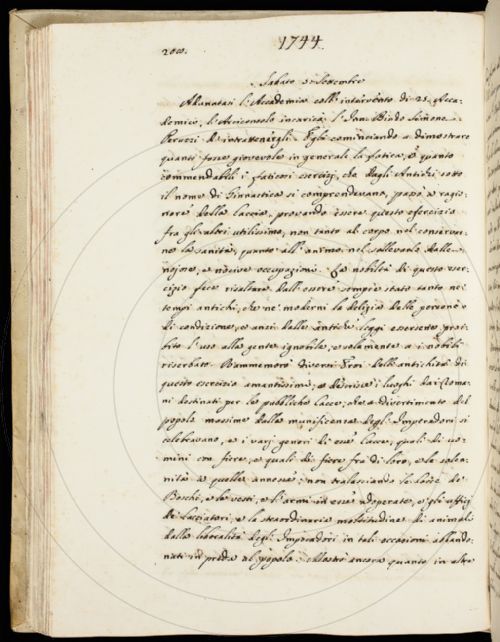 200.
1744
Sabato 5 Settembre
Adunatasi l'Accademia coll'intervento di 25. Acca-
demici, l'Arciconsolo incaricò l'Innº. Bindo Simone
Peruzzi di intrattenergli. Egli cominciando a dimostrare
quanto fosse giovevole in generale la fatica, e quanto
commendabili i faticosi esercizj, che dagli Antichi sotto
il nome di Ginnastica si comprendevano, passò a ragio-
nare della Caccia, provando essere questo esercizio
fra gli altri utilissimo, non tanto al corpo nel conservar-
ne la sanità, quanto all'animo nel sollevarlo dalle
nojose, e nocive occupazioni. La nobiltà di questo eser-
cizio fece risaltare dall'essere sempre stato tanto ne'
tempi antichi, che ne' moderni la delizia delle persone
di condizione, e anzi dalle antiche leggi essersene proi-
bito l'uso alla gente ignobile, e solamente a i nobili
riserbato. Rammemorò diversi Eroi dell'antichità di
questo esercizio amantissimi, e descrisse i luoghi da i Roma-
ni destinati per le pubbliche Cacce, che a divertimento del
popolo massime dalla munificenza degli Imperadori si
celebravano, e i varj generi di esse Cacce, quali di uo-
mini con fiere, e quali di fiere fra di loro, e la solen-
nità a quelle annessa; non tralasciando
Boschi, e le vesti, e l'armi in esse adoperate, e gli uffizj
de' Cacciatori, e la straordinaria moltitudine di animali
dalla liberalità degli Imperadori in tali occasioni abbando-
nati in preda al popolo. Mostrò ancora quanto in altre